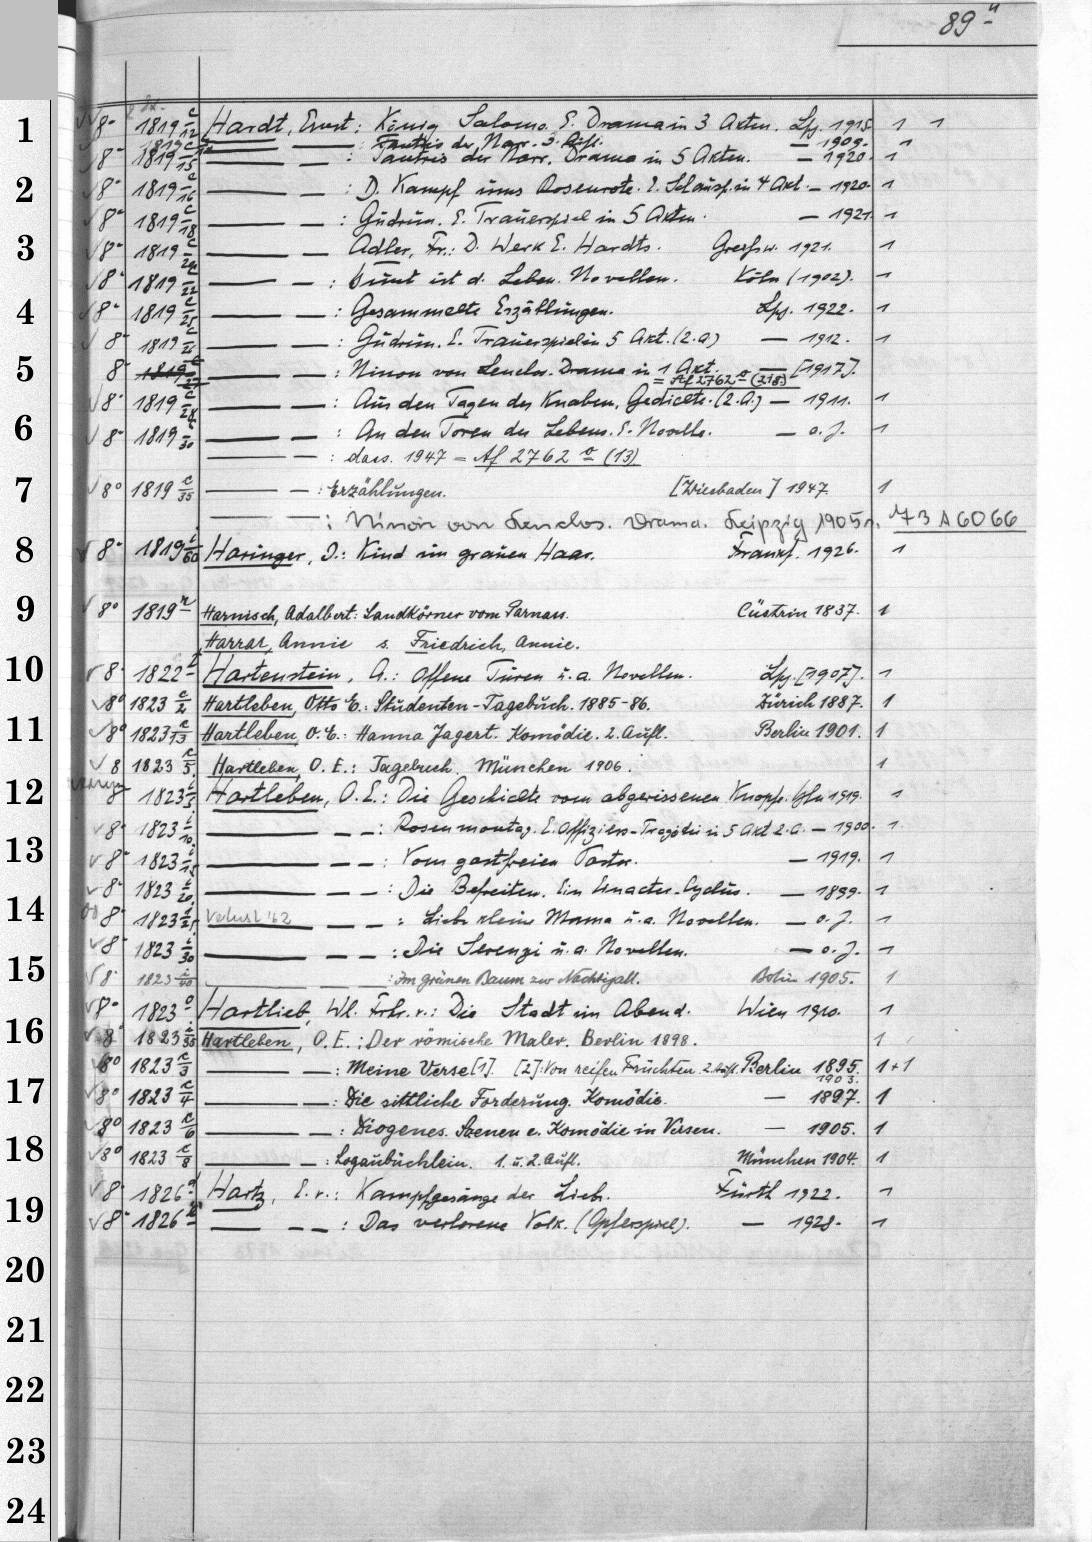 89 u
1 8° 1819 c/12 Hardt, Ernst: König Salomo. E. Drama in 3 Akten. Lpz. 1915 1 1
1819 c/12 — — : Tantris der Narr. 3. Aufl. — 1909. 1
8° 1819 c/15 — — : Tantris der Narr. Drama in 5 Akten. — 1920. 1
2 8° 1819 c/16 — — : D. Kampf ums Rosenrote. E. Schausp. in 4 Akt. — 1920. 1
8° 1819 c/18 — — : Gudrun. E. Trauerspiel in 5 Akten. — 1921. 1
3 8° 1819 c — — Adler, Fr.: D. Werk E. Hardts. Greifsw. 1921. 1
8° 1819 c/22 — — : Bunt ist d. Leben. Novellen. Köln (1902). 1
4 8° 1819 c/25 — — : Gesammelte Erzählungen. Lpz. 1922. 1
8° 1819 c — — : Gudrun. E. Trauerspiel in 5 Akt. (2. A) — 1912. 1
5 8° 1819 c/27 — — : Ninon von Lenclos. Drama in 1 Akt. — [1917].
= Af 2762 a (318)
8° 1819 c/28 — — : Aus den Tagen des Knaben, Gedichte. (2. A.) — 1911. 1
6 8° 1819 c/30 — — : An den Toren des Lebens. E. Novelle. — o. J. 1
— — : dass. 1947 = Af 2762 a (13)
7 8° 1819 c/35 — — : Erzählungen. [Wiesbaden] 1947 1
— — : Ninon von Lenclos. Drama. Leipzig 1905. 73 A 6066
8 8° 1819 i/60 Haringer, J.: Kind im grauen Haar. Frankf. 1926. 1
9 8° 1819 n Harnisch, Adalbert: Sandkörner vom Parnass. Cüstrin 1837. 1
Harrar, Annie s. Friedrich, Annie.
10 8° 1822 Hartenstein, A.: Offene Türen u. a. Novellen. Lpz. [1907]. 1
8° 1823 c/2 Hartleben, Otto E.: Studenten-Tagebuch. 1885-86. Zürich 1887. 1
11 8° 1823 c/13 Hartleben, O. E.: Hanna Jagert. Komödie. 2. Aufl. Berlin 1901. 1
8 1823 c/5 Hartleben, O. E.: Tagebuch. München 1906. 1
12 8° 1823 i/5 Hartleben, O. E.: Die Geschichte vom abgerissenen Knopfe. Bln 1919. 1
8° 1823 i/10 — — — : Rosenmontag. E. Offiziers-Tragödie in 5 Akt 2. A. — 1900. 1
13 8° 1823 i/15 — — — : Vom gastfreien Pastor. — 1919. 1
8° 1823 i/20 — — — : Die Befreiten. Ein Einacter-Cyclus. — 1899. 1
14 8° 1823 i/25 Verlust '62 — — : Liebe kleine Mama u. a. Novellen. — o. J. 1
8° 1823 i/30 — — — : Die Serenyi u. a. Novellen. — o. J. 1
15 8° 1823 i/40 — — — : Im grünen Baum zur Nachtigall. Berlin 1905. 1
8° 1823 o Hartlieb, Wl. Frhr. v.: Die Stadt im Abend. Wien 1910. 1
16 8° 1823 i/35 Hartleben, O. E.: Der römische Maler. Berlin 1898. 1
8° 1823 c/3 — — : Meine Verse [1]. [2]: Von reifen Früchten. 2. Aufl. Berlin 1895. 1+1
1903.
17 8° 1823 c/4 — — : Die sittliche Forderung. Komödie. — 1897. 1
8° 1823 c/6 — — : Diogenes. Szenen e. Komödie in Versen. — 1905. 1
18 8° 1823 c/8 — — : Logaubüchlein. 1. u. 2. Aufl. München 1904. 1
8° 1826 Hartz, E. v.: Kampfgesänge der Liebe. Fürth 1922. 1
19 8° 1826 — — — : Das verlorene Volk. (Opferspiel). — 1928. 1
20
21
22
23
24